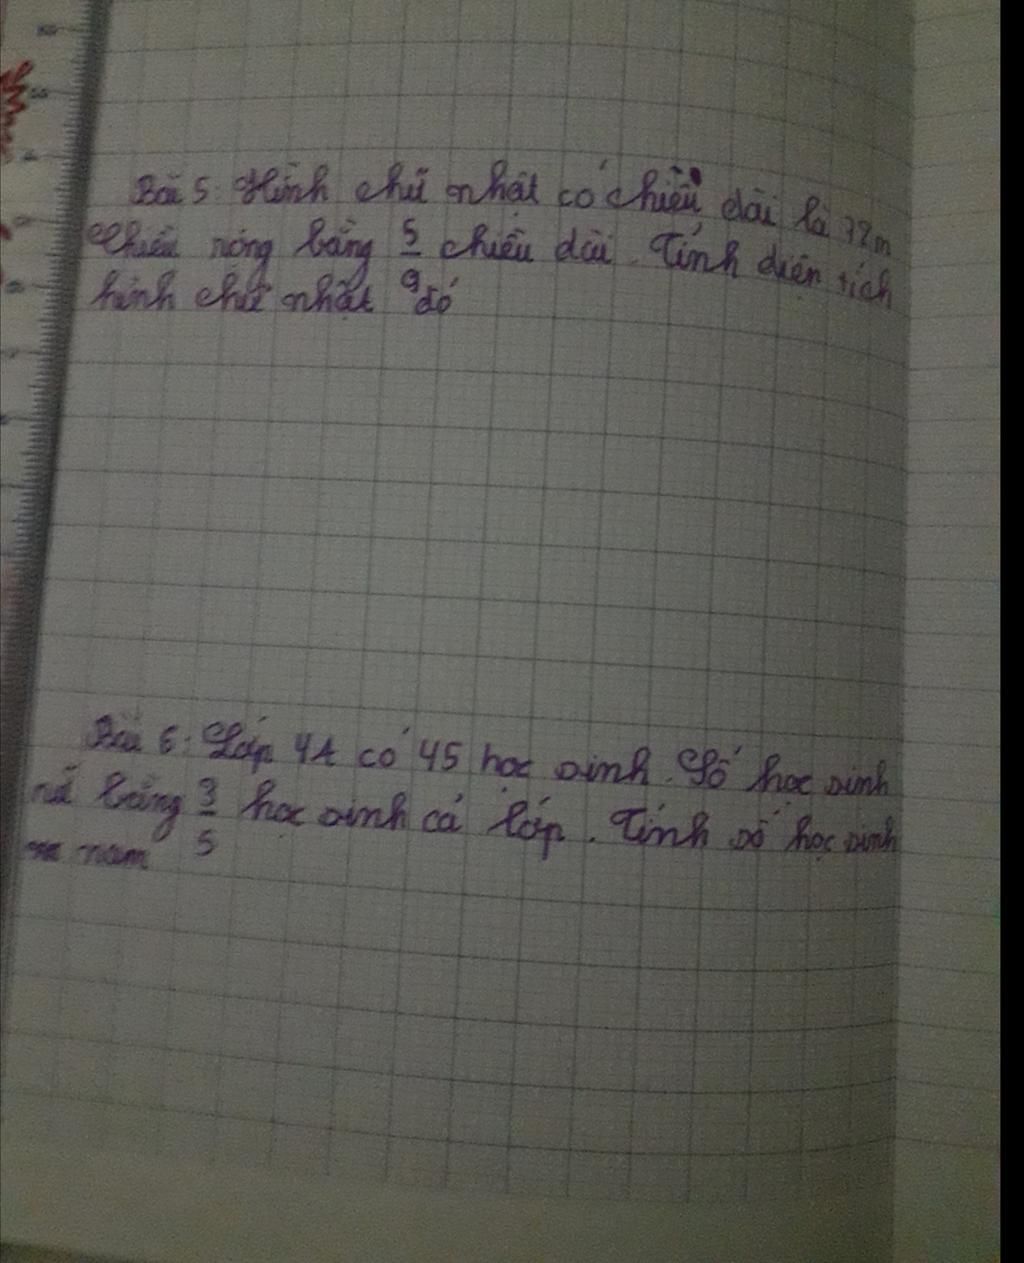 Bài 5: Hình chữ nhật có chiều dài là 72m
Chiều rộng bằng 5/9 chiều dài. Tính diện tích
hình chữ nhật đó
Bài 6: Lớp 4A có 45 học sinh. Số học sinh
nữ bằng 3/5 học sinh cả lớp. Tính số học sinh
nam